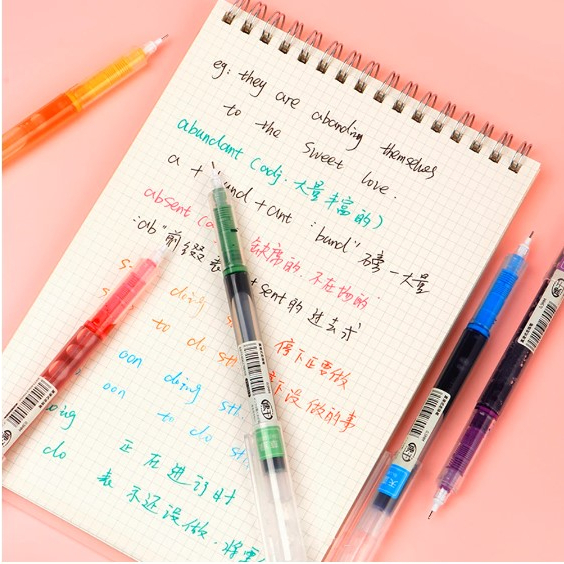 eg: they are abanding themselves
to the sweet love.
abundant (adj. 大量丰富的)
a + und + ant "band" 磅一大量
absent (a 缺席的. 不在场的.
"ab" 前缀 表 + sent的过去式
s doing s 停下正要做
to do sth 下没做的事
oon doing sth
oon to do st
oing 正在进行时
do 表 不还没做. 将要